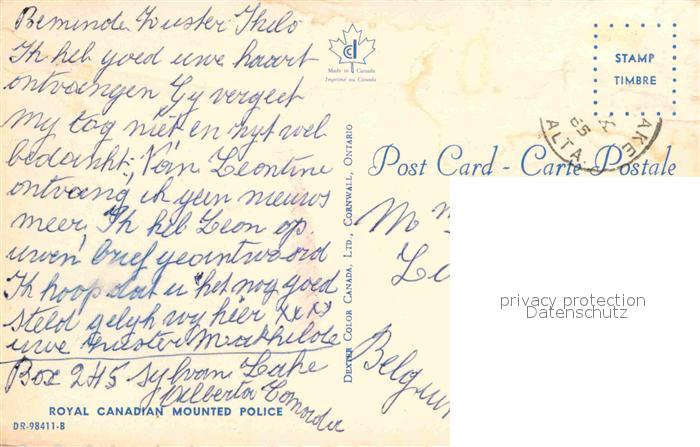 Beminde Zuster Thilo
Ik heb goed uwe kaart
ontvangen Gy vergeet
my tog niet en zyt wel
bedankt: Van Leontine
ontvang ik geen nieuws
meer, Ik heb Leon op
uwen brief geantwoord
Ik hoop dat u het nog goed
steld gelyk wy hier xxxx
uwe zuster Mathilde
Box 245 Sylvan Lake
Alberta Canada
ROYAL CANADIAN MOUNTED POLICE
DR-98411-B
Made in Canada
Imprimé au Canada
DEXTER COLOR CANADA, LTD., CORNWALL, ONTARIO
STAMP
TIMBRE
AKE
ALTA.
Post Card - Carte Postale
privacy protection
Datenschutz